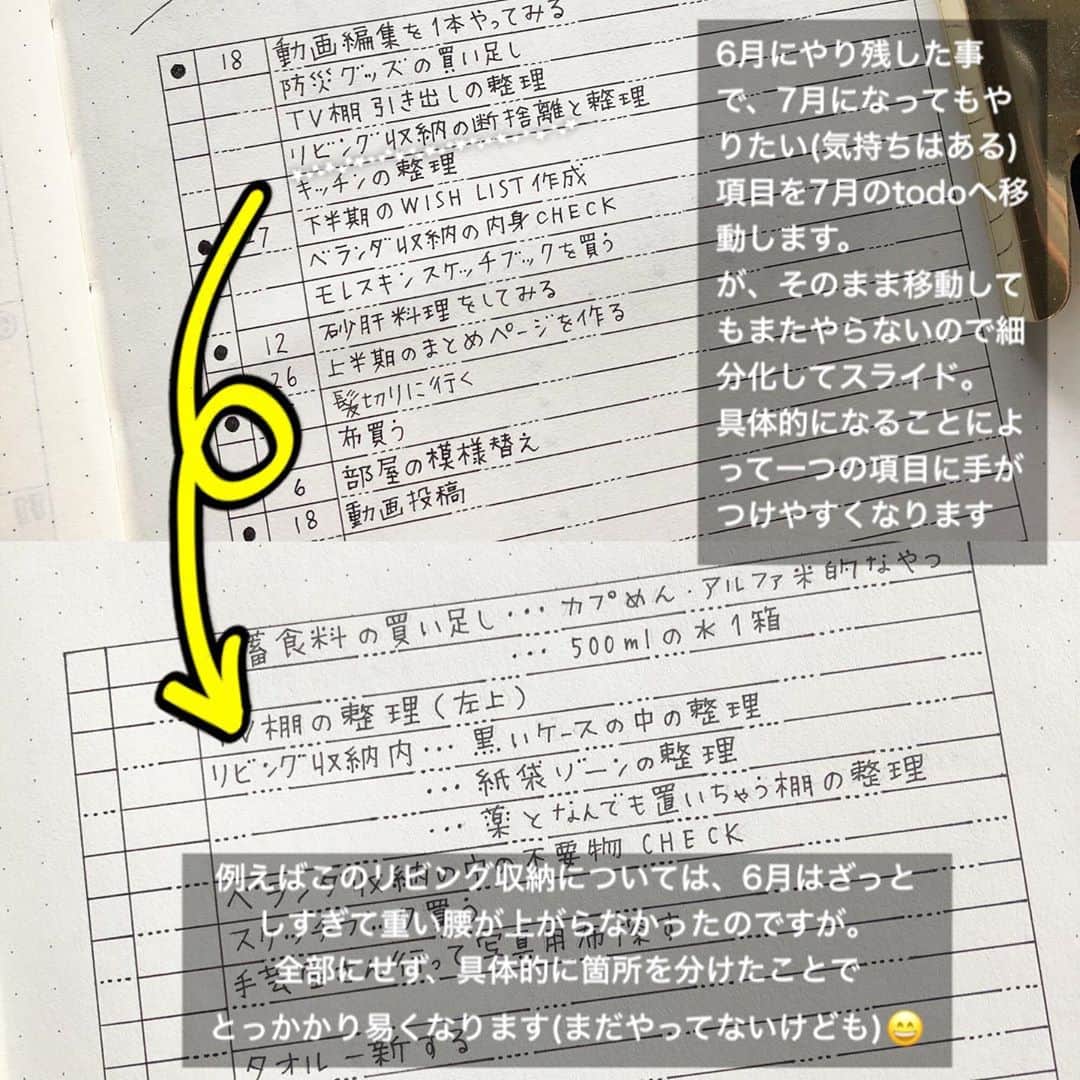 18 動画編集を1本やってみる
防災グッズの買い足し
TV棚 引き出しの整理
リビング収納の断捨離と整理
キッチンの整理
下半期のWISH LIST作成
7 ベランダ収納の内身CHECK
モレスキンスケッチブックを買う
砂肝料理をしてみる
12 上半期のまとめページを作る
26 髪切りに行く
布買う
6 部屋の模様替え
18 動画投稿
6月にやり残した事
で、7月になってもや
りたい(気持ちはある)
項目を7月のtodoへ移
動します。
が、そのまま移動して
もまたやらないので細
分化してスライド。
具体的になることによ
って一つの項目に手が
つけやすくなります
蓄食料の買い足し… カプめん・アルファ米的なやつ
… 500mlの水1箱
TV棚の整理(左上)
リビング収納内… 黒いケースの中の整理
… 紙袋ゾーンの整理
… 薬となんでも置いちゃう棚の整理
ベランダ収納の中の不要物CHECK
買う
手芸 行って写真用布探す
タオル一新する
例えばこのリビング収納については、6月はざっと
しすぎて重い腰が上がらなかったのですが。
全部にせず、具体的に箇所を分けたことで
とっかかり易くなります(まだやってないけども)😄